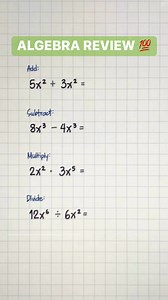 ALGEBRA REVIEW 💯
Add:
5x² + 3x² =
Subtract:
8x³ − 4x³ =
Multiply:
2x² · 3x⁵ =
Divide:
12x⁶ ÷ 6x² =